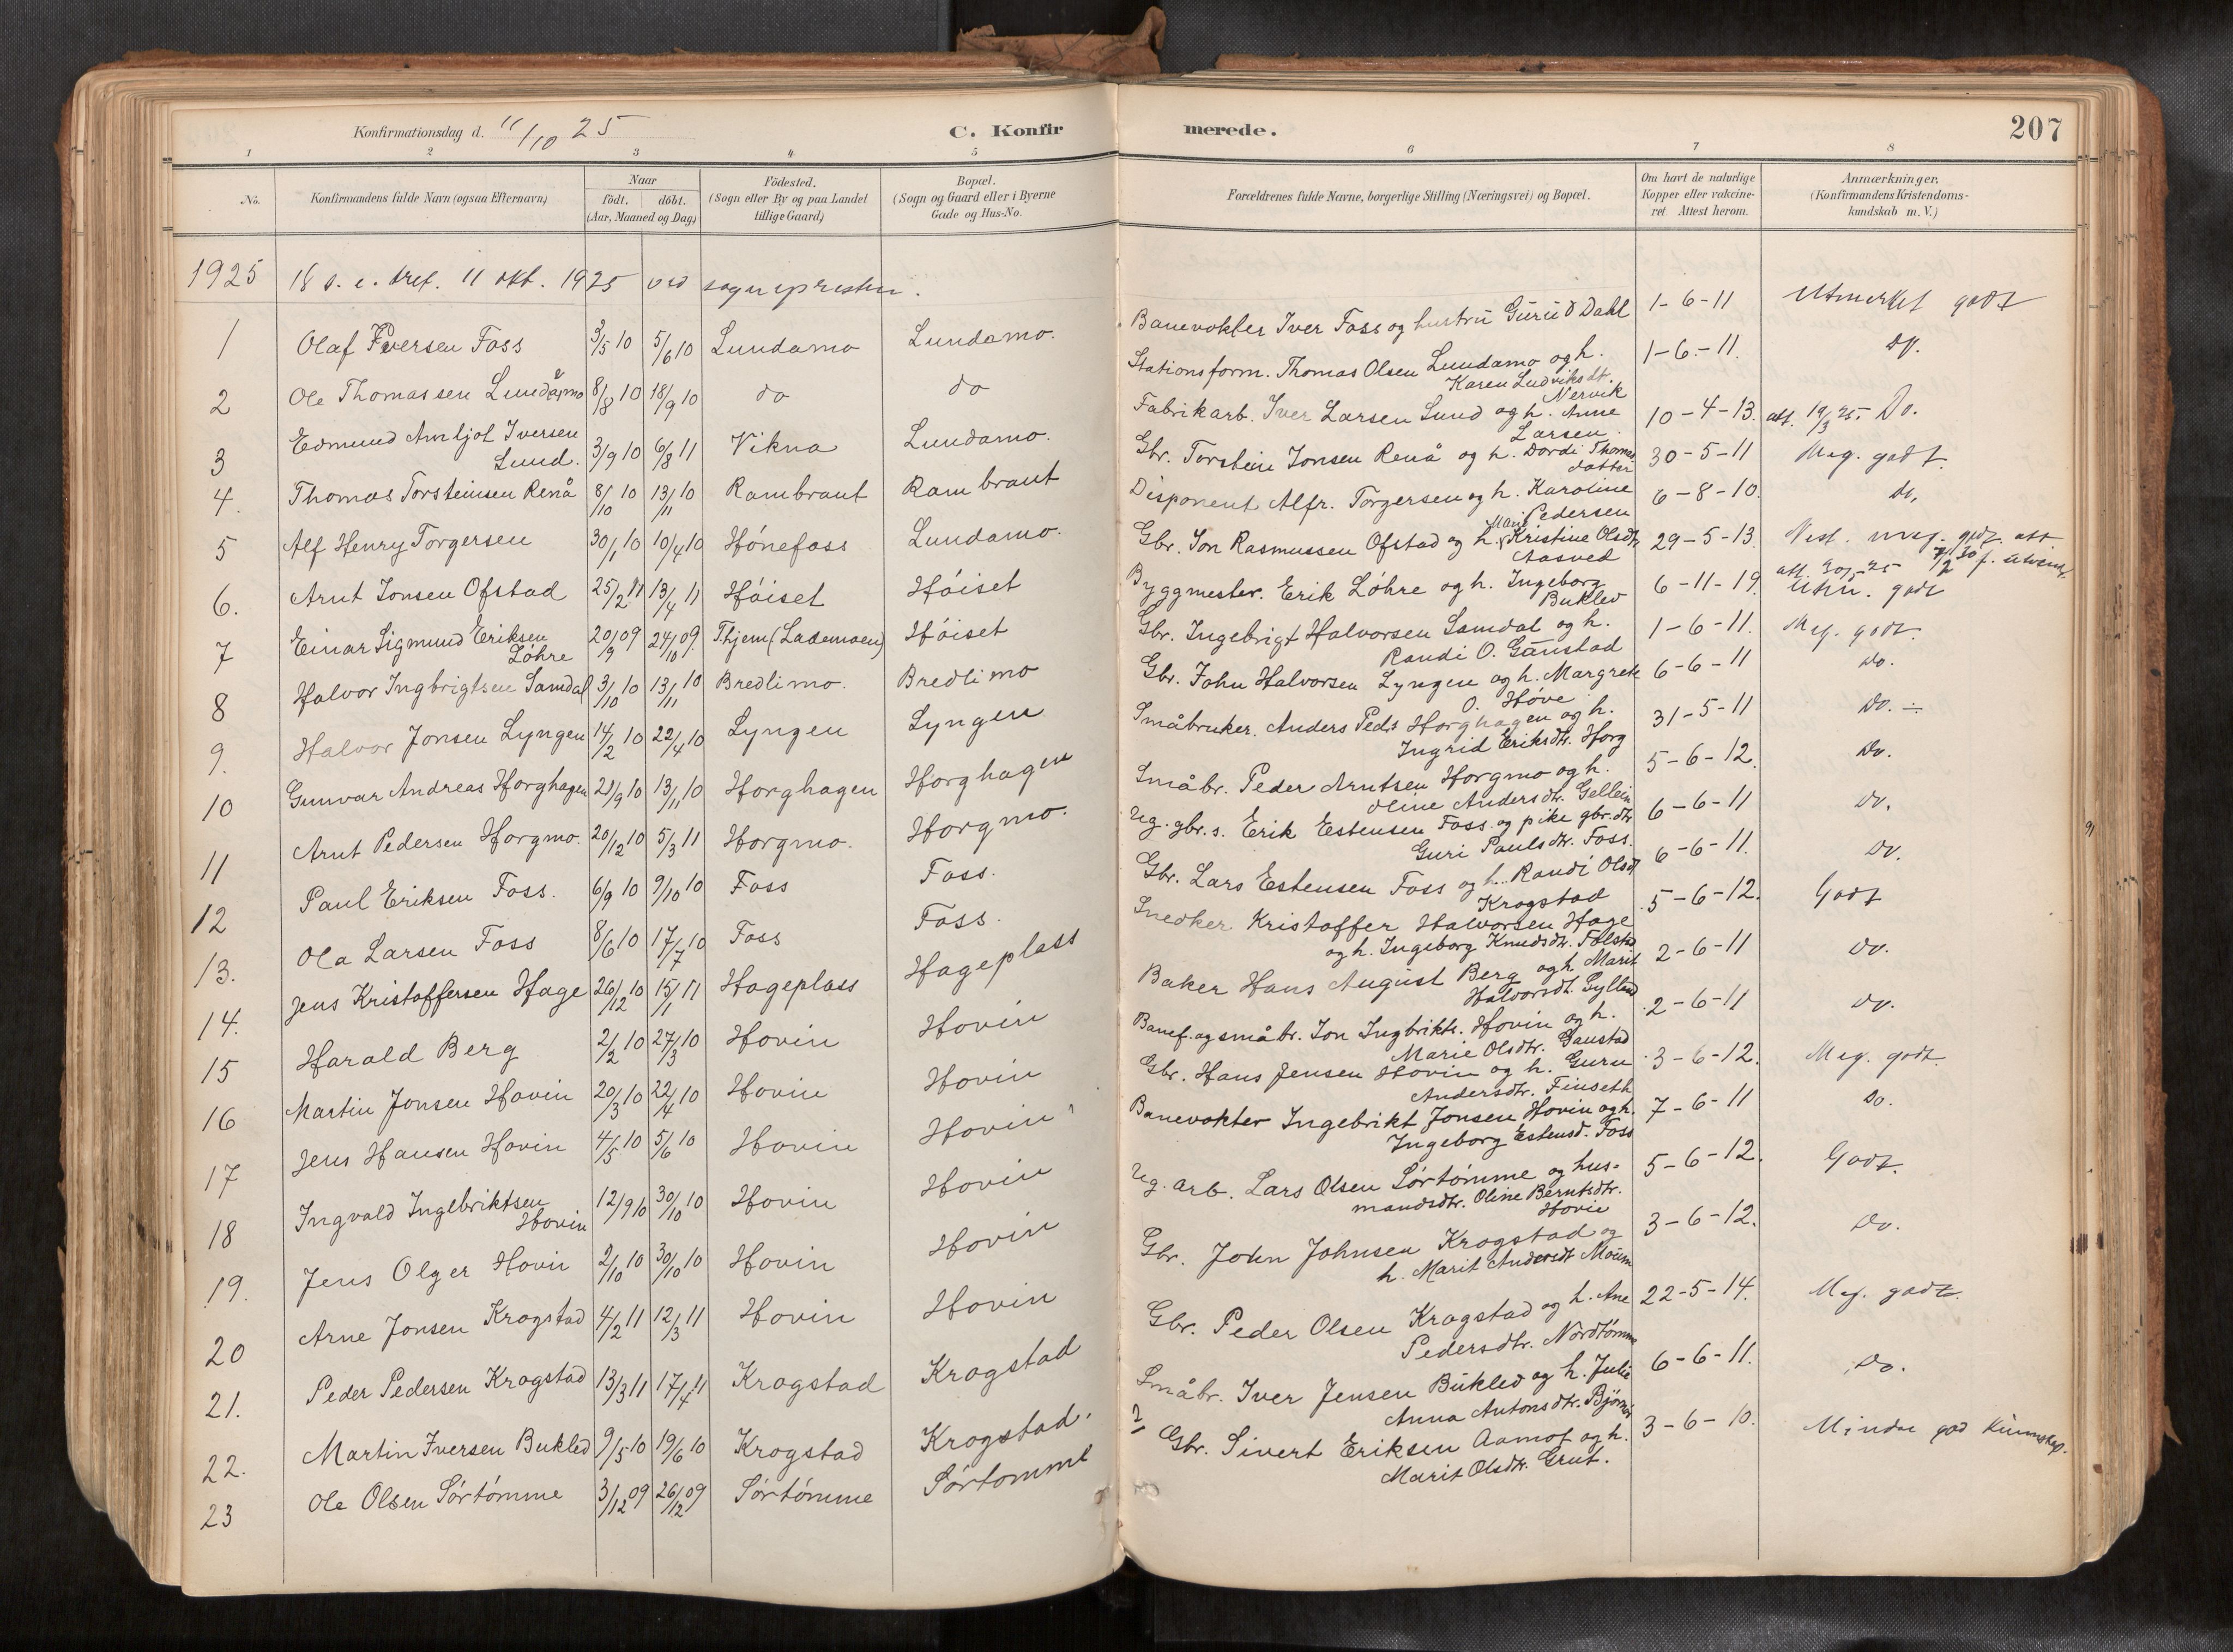 Konfirmationsdag d. 11/10 25
C. Konfir
merede.
207
1 2 3 4 5 6 7 8
No.
Konfirmandens fulde Navn (ogsaa Efternavn)
Naar
födt. döbt.
(Aar, Maaned og Dag)
Födested.
(Sogn eller By og paa Landet
tillige Gaard)
Bopæl.
(Sogn og Gaard eller i Byerne
Gade og Hus-No.
Forældrenes fulde Navne, borgerlige Stilling (Næringsvei) og Bopæl.
Om havt de naturlige
Kopper eller vakcine-
ret Attest herom.
Anmærkninger.
(Konfirmandens Kristendoms-
kundskab m. V.)
1925 18 s. e. tref. 11 okt. 1925 ved sognepresten.
1 Olaf Iversen Foss 3/5 10 5/6 10 Lundamo Lundamo.
Banevokter Iver Foss og hustru Guru O Dahl 1-6-11 Utmerket godt
2 Ole Thomassen Lundamo 8/8 10 18/9 10 do do
Stationsform. Thomas Olsen Lundamo og h. 1-6-11. do.
Karen Ludviksdt.
Nervik
3 Edmund Arnljot Iversen
Lund. 3/9 10 6/8 11 Vikna Lundamo.
Fabrikarb. Iver Larsen Lund og h. Anne 10-4-13. att. 19/3 25. Do.
Larsen.
4. Thomas Torsteinsen Renå 8/10 10 13/11 10 Rambraut Rambraut
Gbr. Torstein Jonsen Renå og h. Dordi Thomas 30-5-11 Meg. godt.
datter
5 Alf Henry Torgersen 30/1 10 10/4 10 Hönefoss Lundamo.
Disponent Alfr. Torgersen og h. Karoline 6-8-10. do.
Pedersen
6. Arnt Jonsen Ofstad 25/2 11 13/4 11 Höiset Höiset
Gbr. Jon Rasmussen Ofstad og h. Mari Kristine Olsdt. 29-5-13. Nest. meg. godt att
Aasved
7 Einar Sigmund Eriksen
Löhre 20/9 09 24/10 09. Thjem (Lademoen) Höiset
Byggmester. Erik Löhre og h. Ingeborg 6-11-19. Utm. godt
Buklev
8 Halvor Ingbrigtsen Samdal 3/10 10 13/11 10 Bredlimo. Bredlimo
Gbr. Ingebrigt Halvorsen Samdal og h. 1-6-11. Meg. godt.
Randi O. Gaustad
9. Halvor Jonsen Lyngen 14/2 10 22/4 10 Lyngen Lyngen
Gbr. John Halvorsen Lyngen og h. Margrete 6-6-11 do.
O. Höve
10 Gunvar Andreas Horghagen 28/9 10 13/11 10 Horghagen Horghagen
Småbruker. Anders Peds. Horghagen og h. 31-5-11 Do.
Ingrid Eriksdtr. Horg
11 Arnt Pedersen Horgmo. 20/12 10 5/3 11 Horgmo. Horgmo.
Småbr. Peder Arntsen Horgmo og h. 5-6-12. Do.
Oline Andersdtr. Gellein
12 Paul Eriksen Foss. 6/9 10 9/10 10 Foss Foss.
Ug. gbr. s. Erik Estensen Foss og pike gbr. dtr. 6-6-11 do.
Guri Paulsdtr. Foss.
13. Ola Larsen Foss 8/6 10 17/7 10 Foss Foss.
Gbr. Lars Estensen Foss og h. Randi Olsdt 6-6-11. do.
Krogstad
14. Jens Kristoffersen Hage 26/12 10 15/1 11 Hageplass Hageplass
Snedker Kristoffer Halvorsen Hage 5-6-12. Godt
og h. Ingeborg Knudsdtr. Folstad
15 Harald Berg 2/2 10 27/3 10 Hovin Hovin
Baker Hans August Berg og h. Marit 2-6-11 do.
Halvorsdt. Gylland
16 Martin Jonsen Hovin 20/3 10 22/4 10 Hovin Hovin
Banef. og småbr. Jon Ingbrikts. Hovin og h. 2-6-11 do.
Marie Olsdtr. Gaustad
17 Jens Hansen Hovin 4/5 10 5/6 10 Hovin Hovin
Gbr. Hans Jensen Hovin og h. Guru 3-6-12. Meg. godt
Andersdtr. Finseth
18 Ingvald Ingebriktsen
Hovin 12/9 10 30/10 10 Hovin Hovin
Banevokter Ingebrikt Jonsen Hovin og h. 7-6-11 Do.
Ingeborg Estensd. Foss
19. Jens Olger Hovin 2/10 10 30/10 10 Hovin Hovin
Ug. arb. Lars Olsen Sörtömme og hus- 5-6-12. Godt.
mandsdtr. Oline Berntsdtr.
Hovin
20 Arne Jonsen Krogstad 4/2 11 12/3 11 Hovin Hovin
Gbr. John Johnsen Krogstad og 3-6-12. Do.
h. Marit Andersdt Moum
21. Peder Pedersen Krogstad 13/3 11 17/4 11 Krogstad Krogstad
Gbr. Peder Olsen Krogstad og h. Ane 22-5-14. Meg. godt.
Pedersdtr. Nordtömme
22. Martin Iversen Bukled 9/5 10 19/6 10 Krogstad Krogstad.
Småbr. Iver Jensen Bukled og h. Julie 6-6-11. Do.
Anna Antonsdtr.
23 Ole Olsen Sörtömme 3/12 09 26/12 09 Sörtömme Sörtomme
Gbr. Sivert Eriksen Aamot og h. 3-6-10. Mindre god kunnskap.
Marit Olsdtr. Grut.